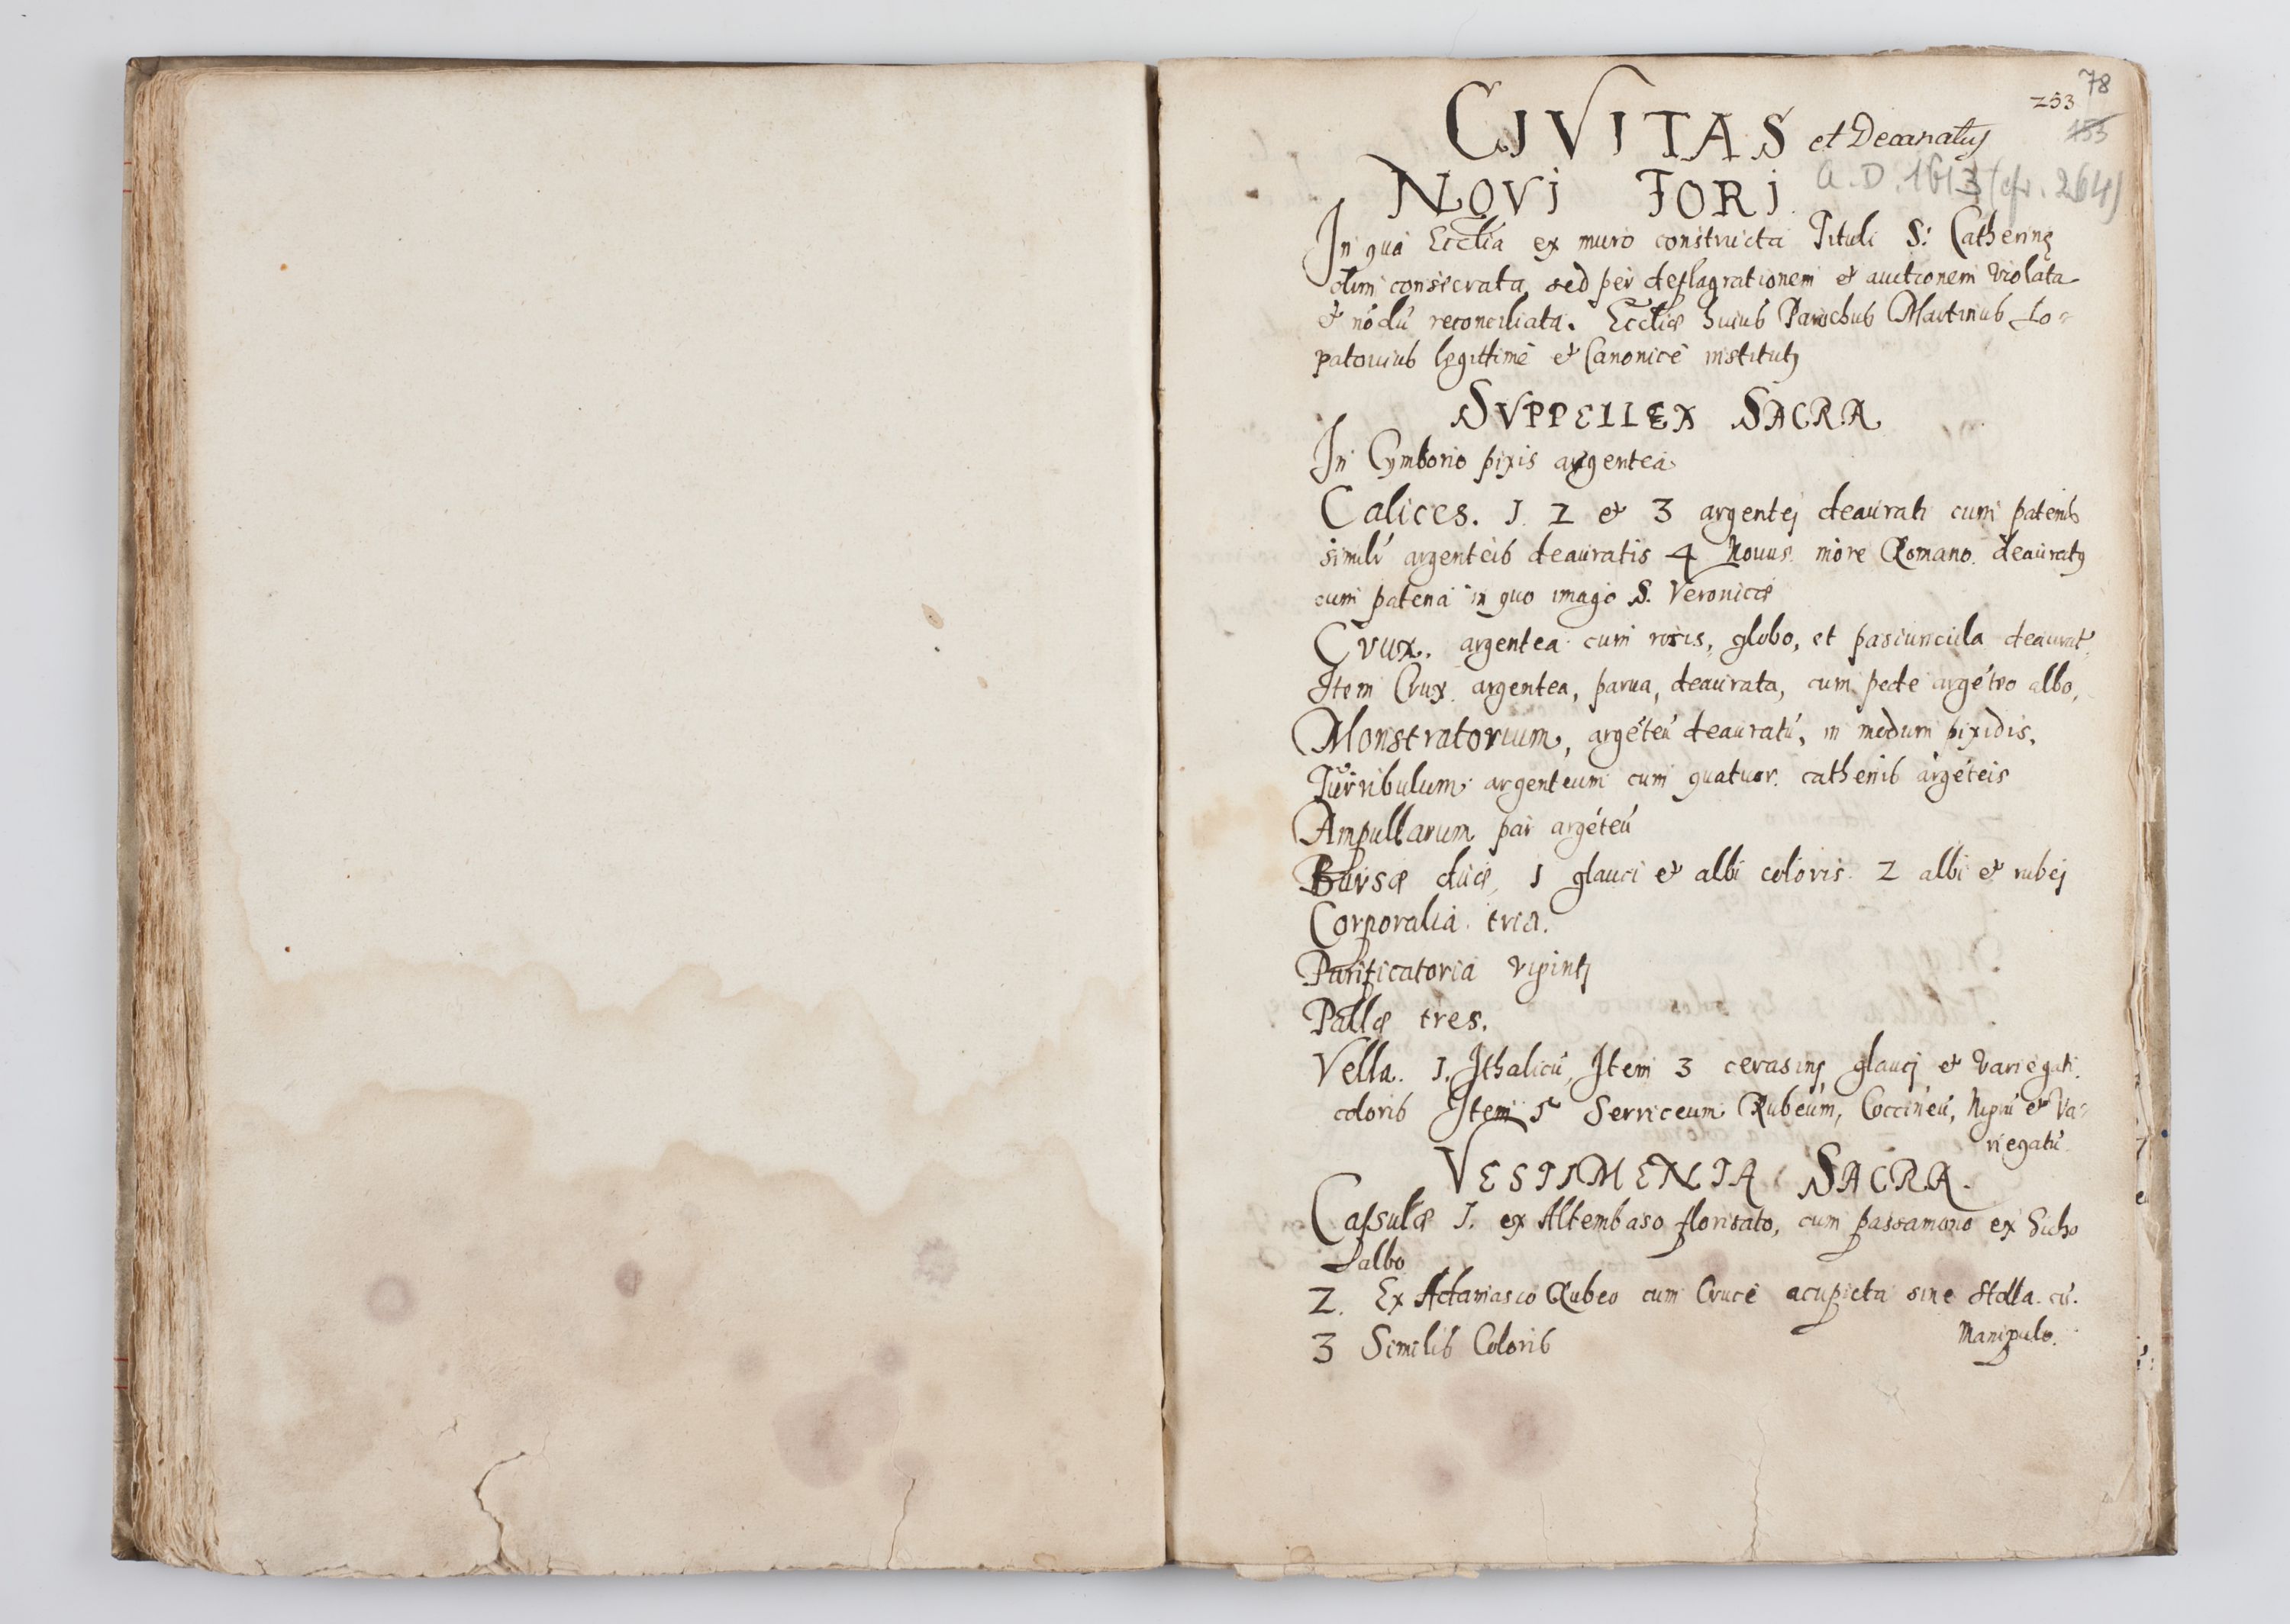 78
253
153
CIVITAS et Decanatus
NOVI FORI
A.D. 1613 (cfr. 264)
In qua Ecclia ex muro constructa Tituli S: Catherinę
olim consecrata, sed per deflagrationem et auctionem violata
et nōdū reconciliata. Eccliæ huius Parochus Martinus Lo-
patouius legittimè et Canonicè institutus
SVPPELLEX SACRA
In Cymborio pixis argentea
Calices. 1. 2 et 3 argentej deaurati cum patenis
simili argenteis deauratis 4 Nouus more Romano deauratus
cum patena in quo imago S. Veronicæ
Crux. argentea cum rosis, globo, et pasiuncula deaurat.
Item Crux argentea, parua, deaurata, cum pede argēteo albo,
Monstratorium, argēteū deauratū, in modum pixidis,
Turribulum argenteum cum quatuor cathenis argēteis
Ampullarum par argēteū
Bursæ duæ, 1 glauci et albi coloris 2 albi et rubej
Corporalia tria.
Purificatoria viginti
Pallæ tres.
Vella. 1. Ithalicū, Item 3 cerasinj glaucj et variegati
coloris Item 5 Serriceum Rubeum, Coccineū, Nigrū et Va-
riegatū
VESTIMENTA SACRA.
Cassulæ 1. ex Altembaso florisato, cum passamono ex
albo
2. Ex Adamasco Rubeo cum Cruce acupicta sine Stolla cū.
Manipulo.
3 Similis Coloris